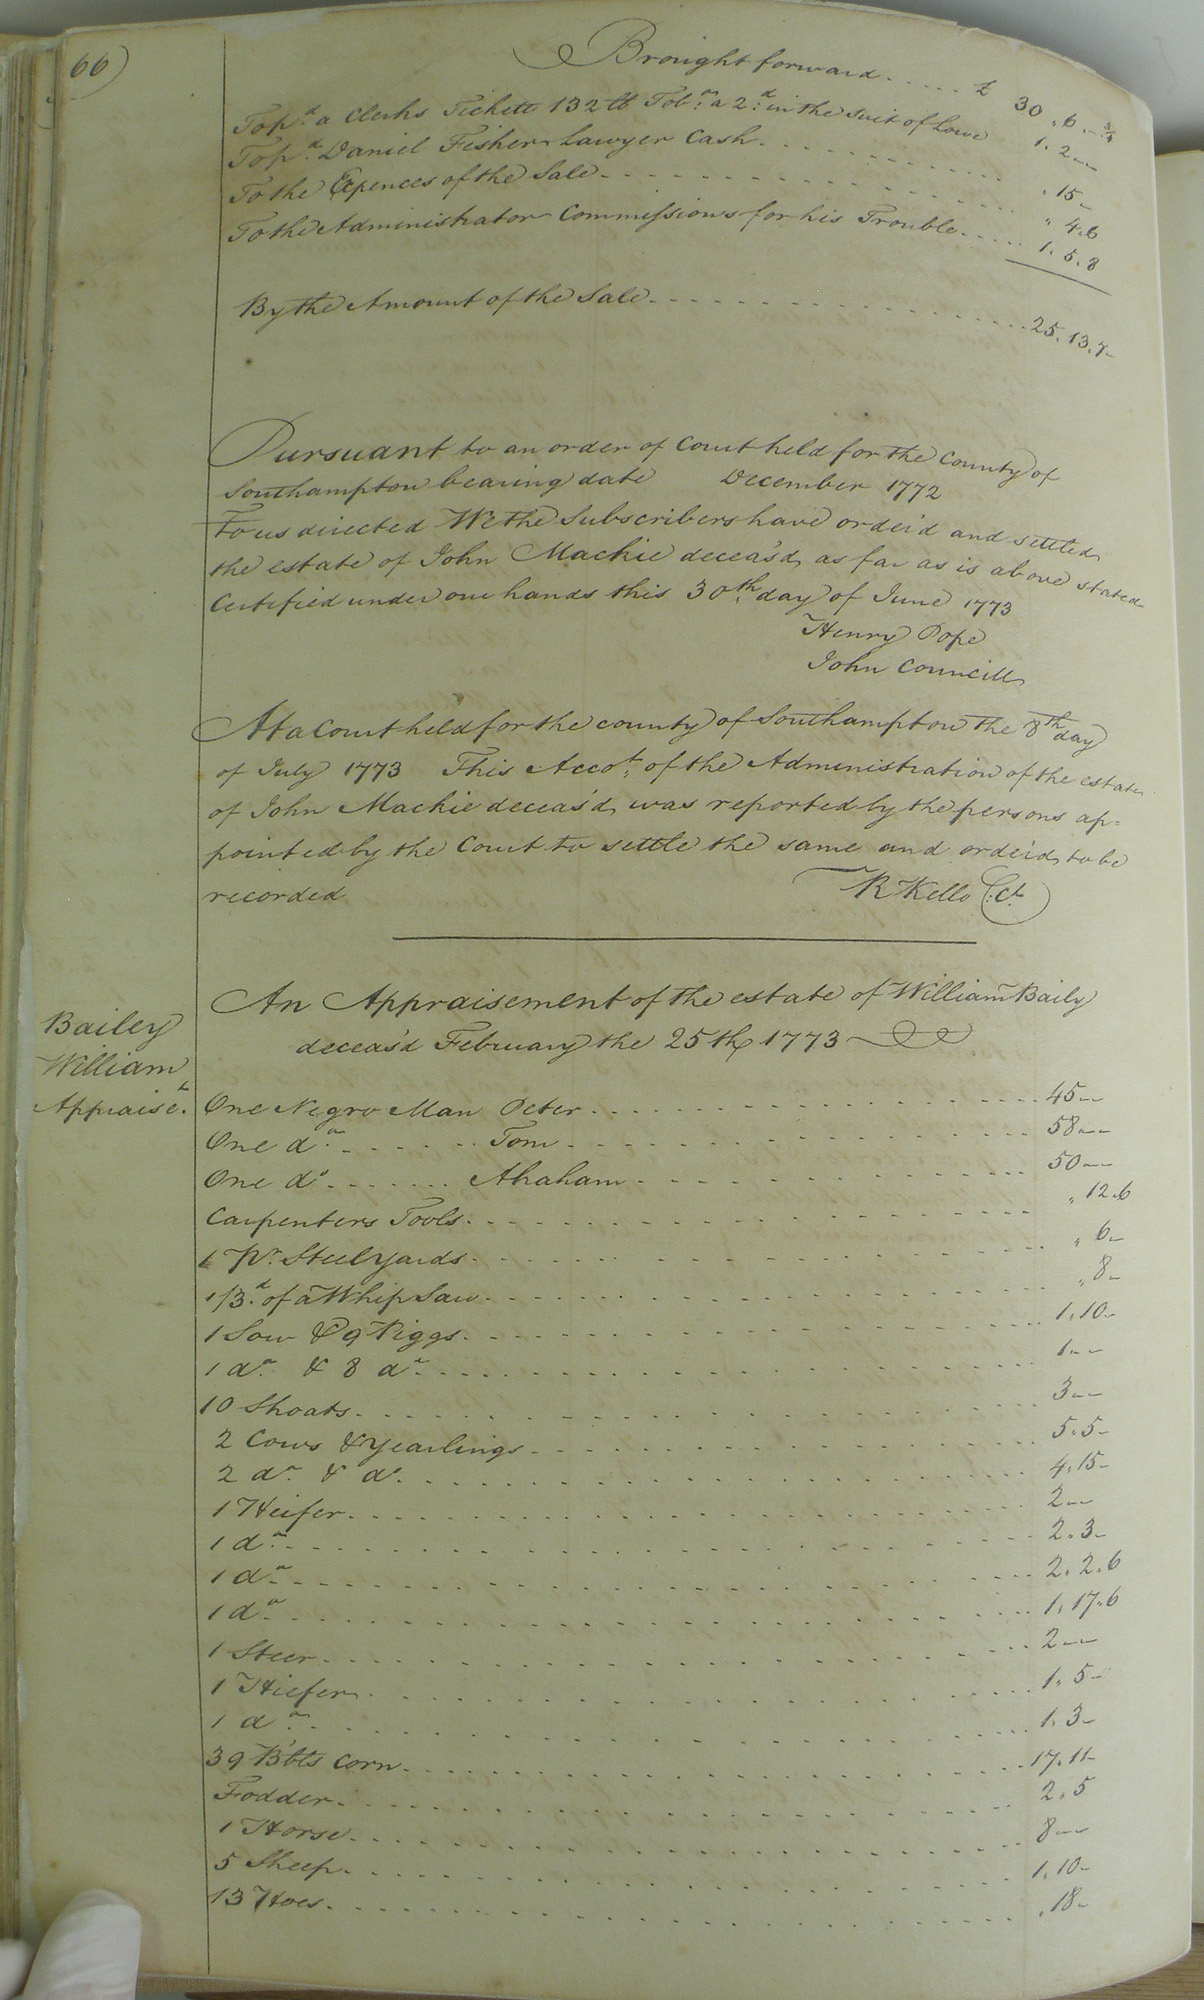 66)
Brought forward .... £ 30 " 6 .. 3/4
To pd. a Clerks Tickett 132 lb Tobo. a 2d. in the suit of Lowe 1. 2 --
To pd. Daniel Fisher Lawyer Cash ........ " 15 -
To the Expences of the Sale ........ " 4.6
To the Administrator Commissions for his Trouble ..... 1. 5. 8
By the Amount of the Sale ........ 25. 13. 7-
Pursuant to an order of Court held for the County of
Southampton bearing date December 1772
To us directed We the Subscribers have order'd and settled
the estate of John Mackie deceas'd as far as is above stated
Certified under our hands this 30th. day of June 1773
Henry Pope
John Councill
At a Court held for the county of Southampton the 8th day
of July 1773 This Accot. of the Administration of the estate
of John Mackie deceas'd was reported by the persons ap=
pointed by the Court to settle the same and order'd to be
recorded R Kello C:Ct
Bailey
William
Appraiset.
An Appraisement of the estate of William Baily
deceas'd February the 25th 1773
One Negro Man Peter ........ 45 --
One do. ...... Tom ........ 58 --
One do ....... Abraham ........ 50 --
Carpenters Tools ........ " 12.6
1 Pr. Steelyards ........ " 6 -
1/3d. of a Whip Saw ........ " 8 -
1 Sow & 9 Piggs ........ 1. 10 -
1 do. & 8 do. ........ 1 - -
10 Shoats ........ 3 --
2 Cows & yearlings ........ 5. 5 -
2 do. & do. ........ 4. 15 -
1 Heifer ........ 2 --
1 do. ........ 2. 3 -
1 do. ........ 2. 2. 6
1 do. ........ 1. 17. 6
1 Steer ........ 2 --
1 Hiefer ........ 1. 5 -
1 do. ........ 1. 3 -
39 Bbts Corn ........ 17. 11 -
Fodder ........ 2. 5
1 Horse ........ 8 --
5 Sheep ........ 1. 10 -
13 Hoes ........ " 18 -